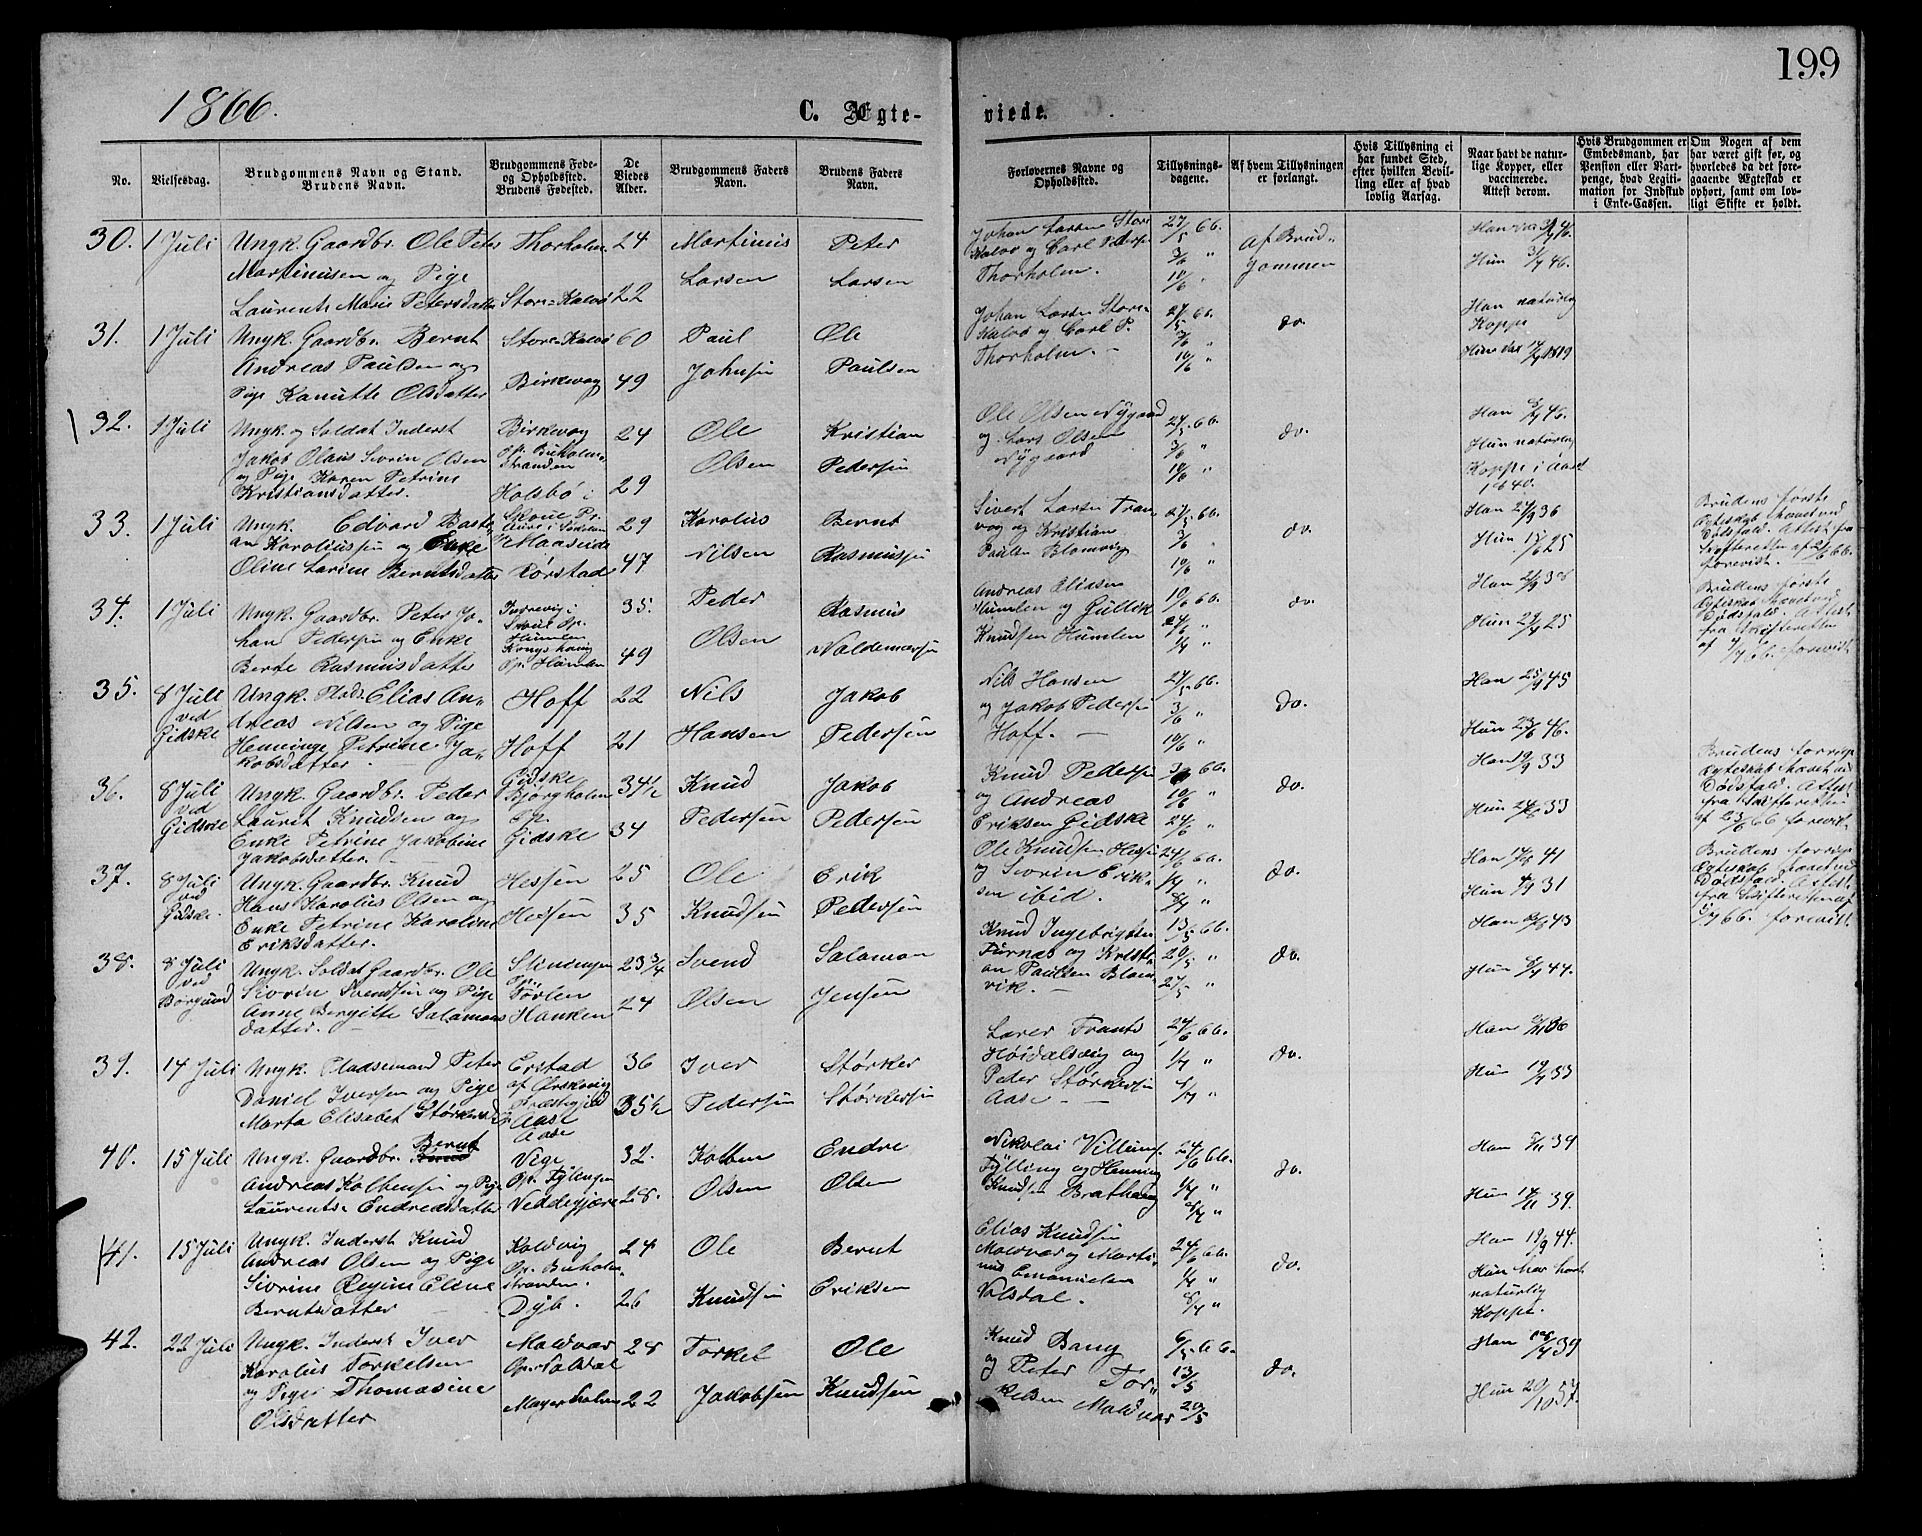 199
1866.
C. Ægte-
viede.
No.
Vielsesdag.
Brudgommens Navn og Stand.
Brudens Navn.
Brudgommens Føde-
og Opholdssted.
Brudens Fødested.
De
Viedes
Alder.
Brudgommens Faders
Navn.
Brudens Faders
Navn.
Forlovernes Navne og
Opholdssted.
Tillysnings-
dagene.
Af hvem Tillysningen
er forlangt.
Hvis Tillysning ei
har fundet Sted,
efter hvilken Bevil-
ling eller af hvad
lovlig Aarsag.
Naar havt de natur-
lige Kopper, eller
vaccinerede.
Attest derom.
Hvis Brudgommen er
Embedsmand, har
Pension eller Vart-
penge, hvad Legiti-
mation for Indskud
i Enke-Cassen.
Om Nogen af dem
har været gift før, og
hvorledes da det fore-
gaaende Ægteskab er
ophørt, samt om lov-
ligt Skifte er holdt.
30. 1 Juli
Ungk. Gaardbr. Ole Peter
Martinusen og Pige
Laurents Marie Petersdatter
Thorholm
Store-Kalvø
24
22
Martinus
Larsen
Peter
Larsen
Johan Larsen Store
Kalvø og Carl Peders
Thorholm.
27/5 66.
3/6 "
10/6 "
Af Brud-
gommen
Han vac 46.
Hun 46.
31. 1 Juli
Ungk. Gaardbr. Bernt
Andreas Paulsen og
Pige Kanutte Olsdatter
Store-Kalvø
Birkevag
60
49
Paul
Johnsen
Ole
Paulsen
Johan Larsen Store-
Kalvø og Carl P.
Thorholm. -
27/5 66.
3/6 "
10/6 "
do.
Han naturlig
Koppe
Hun vac 1819
32. 1 Juli
Ungk. og Soldat Inderst
Jakob Olaus Sivrin Olsen
og Pige Karen Petrine
Kristiansdatter.
Birkevag
Op. Buholm-
stranden
Holsbø i
24
29
Ole
Olsen
Kristian
Pedersen
Ole Olsen Nygaard
og Lars Olsen
Nygaard
27/5 66.
3/6 "
10/6 "
do.
Han 46.
Hun naturlig
Koppe i Aaret
1840.
33. 1 Juli
Ungk. Edvard Basti-
an Karoliussen og Enke
Oline Larine Berntsdatter
Maaseide
Rørstad
29
47
Karolus
Nilsen
Bernt
Rasmussen
Sivert Larsen Tran-
vag og Kristian
Paulsen Blomvig
27/5 66.
3/6 "
10/6 "
do.
Han 36
Hun 25
Brudens første
Ægteskab hævet ved
Dødsfald. Attest fra
Skifteretten af 66.
forevist.
34. 1 Juli
Ungk. Gaardbr. Peter Jo-
han Pedersen og Enke
Berte Rasmusdatter
Indrevig i
Skoue Op.
Humlen
Kongshaug
Op. Humlen
35.
49
Peder
Olsen
Rasmus
Valdemarsen
Andreas Eliasen
Humlen og Gullik
Knudsen Humlen
10/6 66.
24/6 "
1/7 "
do.
Han 38
Hun 25
Brudens første
Ægteskab hævet ved
Dødsfald. Attest
fra Skifteretten
af 66. forevist
35. 8 Juli
ved
Gidske
Ungk. Plads. Elias An-
dreas Nilsen og Pige
Henninge Petrine Ja-
kobsdatter. -
Hoff
Hoff
22
21
Nils
Hansen
Jakob
Pedersen
Nils Hansen
og Jakob Pedersen
Hoff. -
27/5 66.
3/6 "
10/6 "
do.
Han 45
Hun 46.
36. 8 Juli
ved
Gidske
Ungk. Gaardbr. Peder
Laurit Knudsen og
Enke Petrine Jakobine
Jakobsdatter. -
Gidske
Bjørgholm
Op.
Gidske
34½
34
Knud
Pedersen
Jakob
Pedersen
Knud Pedersen
og Andreas
Eriksen Gidske
3/6 66.
10/6 "
24/6 "
do.
Han 33
Hun 33
Brudens forrige
Ægteskab hævet ved
Dødsfald. Attest
fra Skifteretten
af 66 forevist
37. 8 Juli
ved
Gidske.
Ungk. Gaardbr. Knud
Hans Karolus Olsen og
Enke Petrine Karoline
Eriksdatter.
Hessen
Hessen
25
35
Ole
Knudsen
Erik
Pedersen
Ole Knudsen Hessen
og Sivrin Erik-
sen ibid.
24/6 66.
1/7 "
8/7 "
do.
Han 41
Hun 31
Brudens forrige
Ægteskab hævet ved
Dødsfald. Attest
fra Skifteretten af
66. forevist.
38. 8 Juli
ved
Borgund
Ungk. Soldat Gaardbr. Ole
Sivrin Svendsen og Pige
Anne Bergitte Salamons-
datter. -
Hanken
23¾
24
Svend
Olsen
Salamon
Jensen
Knud Ingebrigtsen
Furnæs og Kristi-
an Paulsen Blom-
vik. -
13/5 66.
20/5 "
27/5 "
do.
Han 43
Hun 44.
39. 14 Juli
Ungk. Pladsemand Peter
Daniel Iversen og Pige
Marta Elisabet Størkersd.
Erstad
af Ørskoug
Præstegjeld
Aase
Aase
36
35½
Iver
Pedersen
Størker
Størkersen
Lærer Frants
Høidalsvig og
Peter Størkersen
Aase - -
24/6 66.
1/7 "
8/7 "
do.
Han 36
Hun 33
40. 15 Juli
Ungk. Gaardbr. Bernt
Andreas Kolbensen og Pige
Laurents Endresdatter
Vege
Op. Fyllingen
Veddegjære
32.
28.
Kolben
Olsen
Endre
Olsen
Nikolai Villums.
Fylling og Henning
Knudsen Brathaug
24/6 66.
1/7 "
8/7 "
do.
Han 39
Hun 39.
41. 15 Juli
Ungk. Inderst Knud
Andreas Olsen og Pige
Sivrine Regine Eline
Berntsdatter -
Kaldvig
Op. Buholm-
stranden.
Dyb.
24
26
Ole
Knudsen
Bernt
Eriksen
Elias Knudsen
Moldvær og Marti-
nus Emanuelsen
Volsdal.
24/6 66.
1/7 "
8/7 "
do.
Han 19/9 44.
Hun har havt
naturlig
Koppe.
42. 22 Juli
Ungk. Inderst Iver
Karolus Torkelsen
og Pige Thomasine
Olsdatter
Moldvær
Op. Valdal
Mayerholm
28
22
Torkel
Jakobsen
Ole
Knudsen
Knud Bang
og Peter Tor-
kelsen Moldvær
6/5 66.
13/5
20/5
do.
Han 39
Hun 20/10 57.